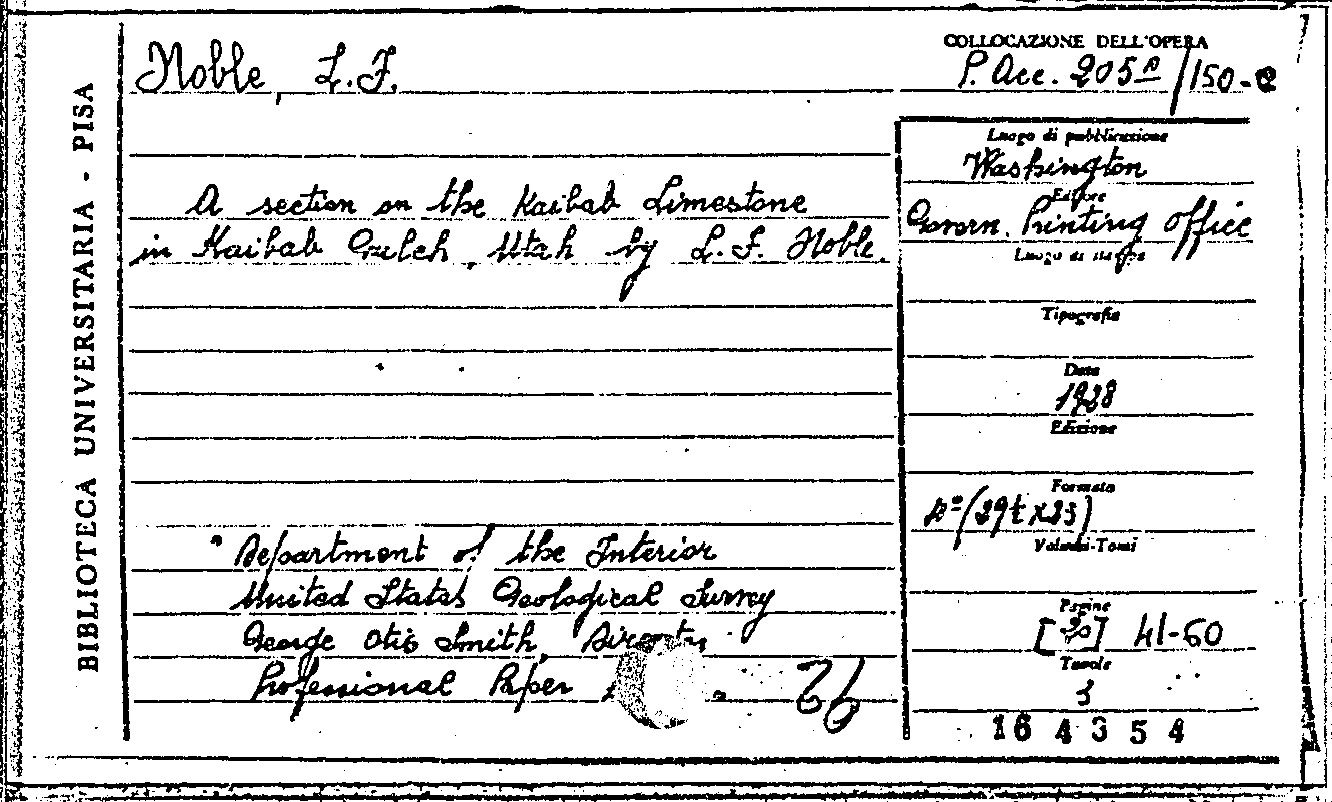 BIBLIOTECA UNIVERSITARIA - PISA
Noble, L.F.
COLLOCAZIONE DELL'OPERA
P. Acc. 205 /150-
A section on the Kaibab Limestone
in Kaibab Gulch, Utah by L.F. Noble.
Luogo di pubblicazione
Washington
Editore
Govern. Printing office
Luogo di stampa
Tipografia
Data
1928
Edizione
Formato
Volumi-Tomi
Pagine
41-60
Tavole
3
164354
Department of the Interior
United States Geological Survey
George Otis Smith, Director
Professional Paper